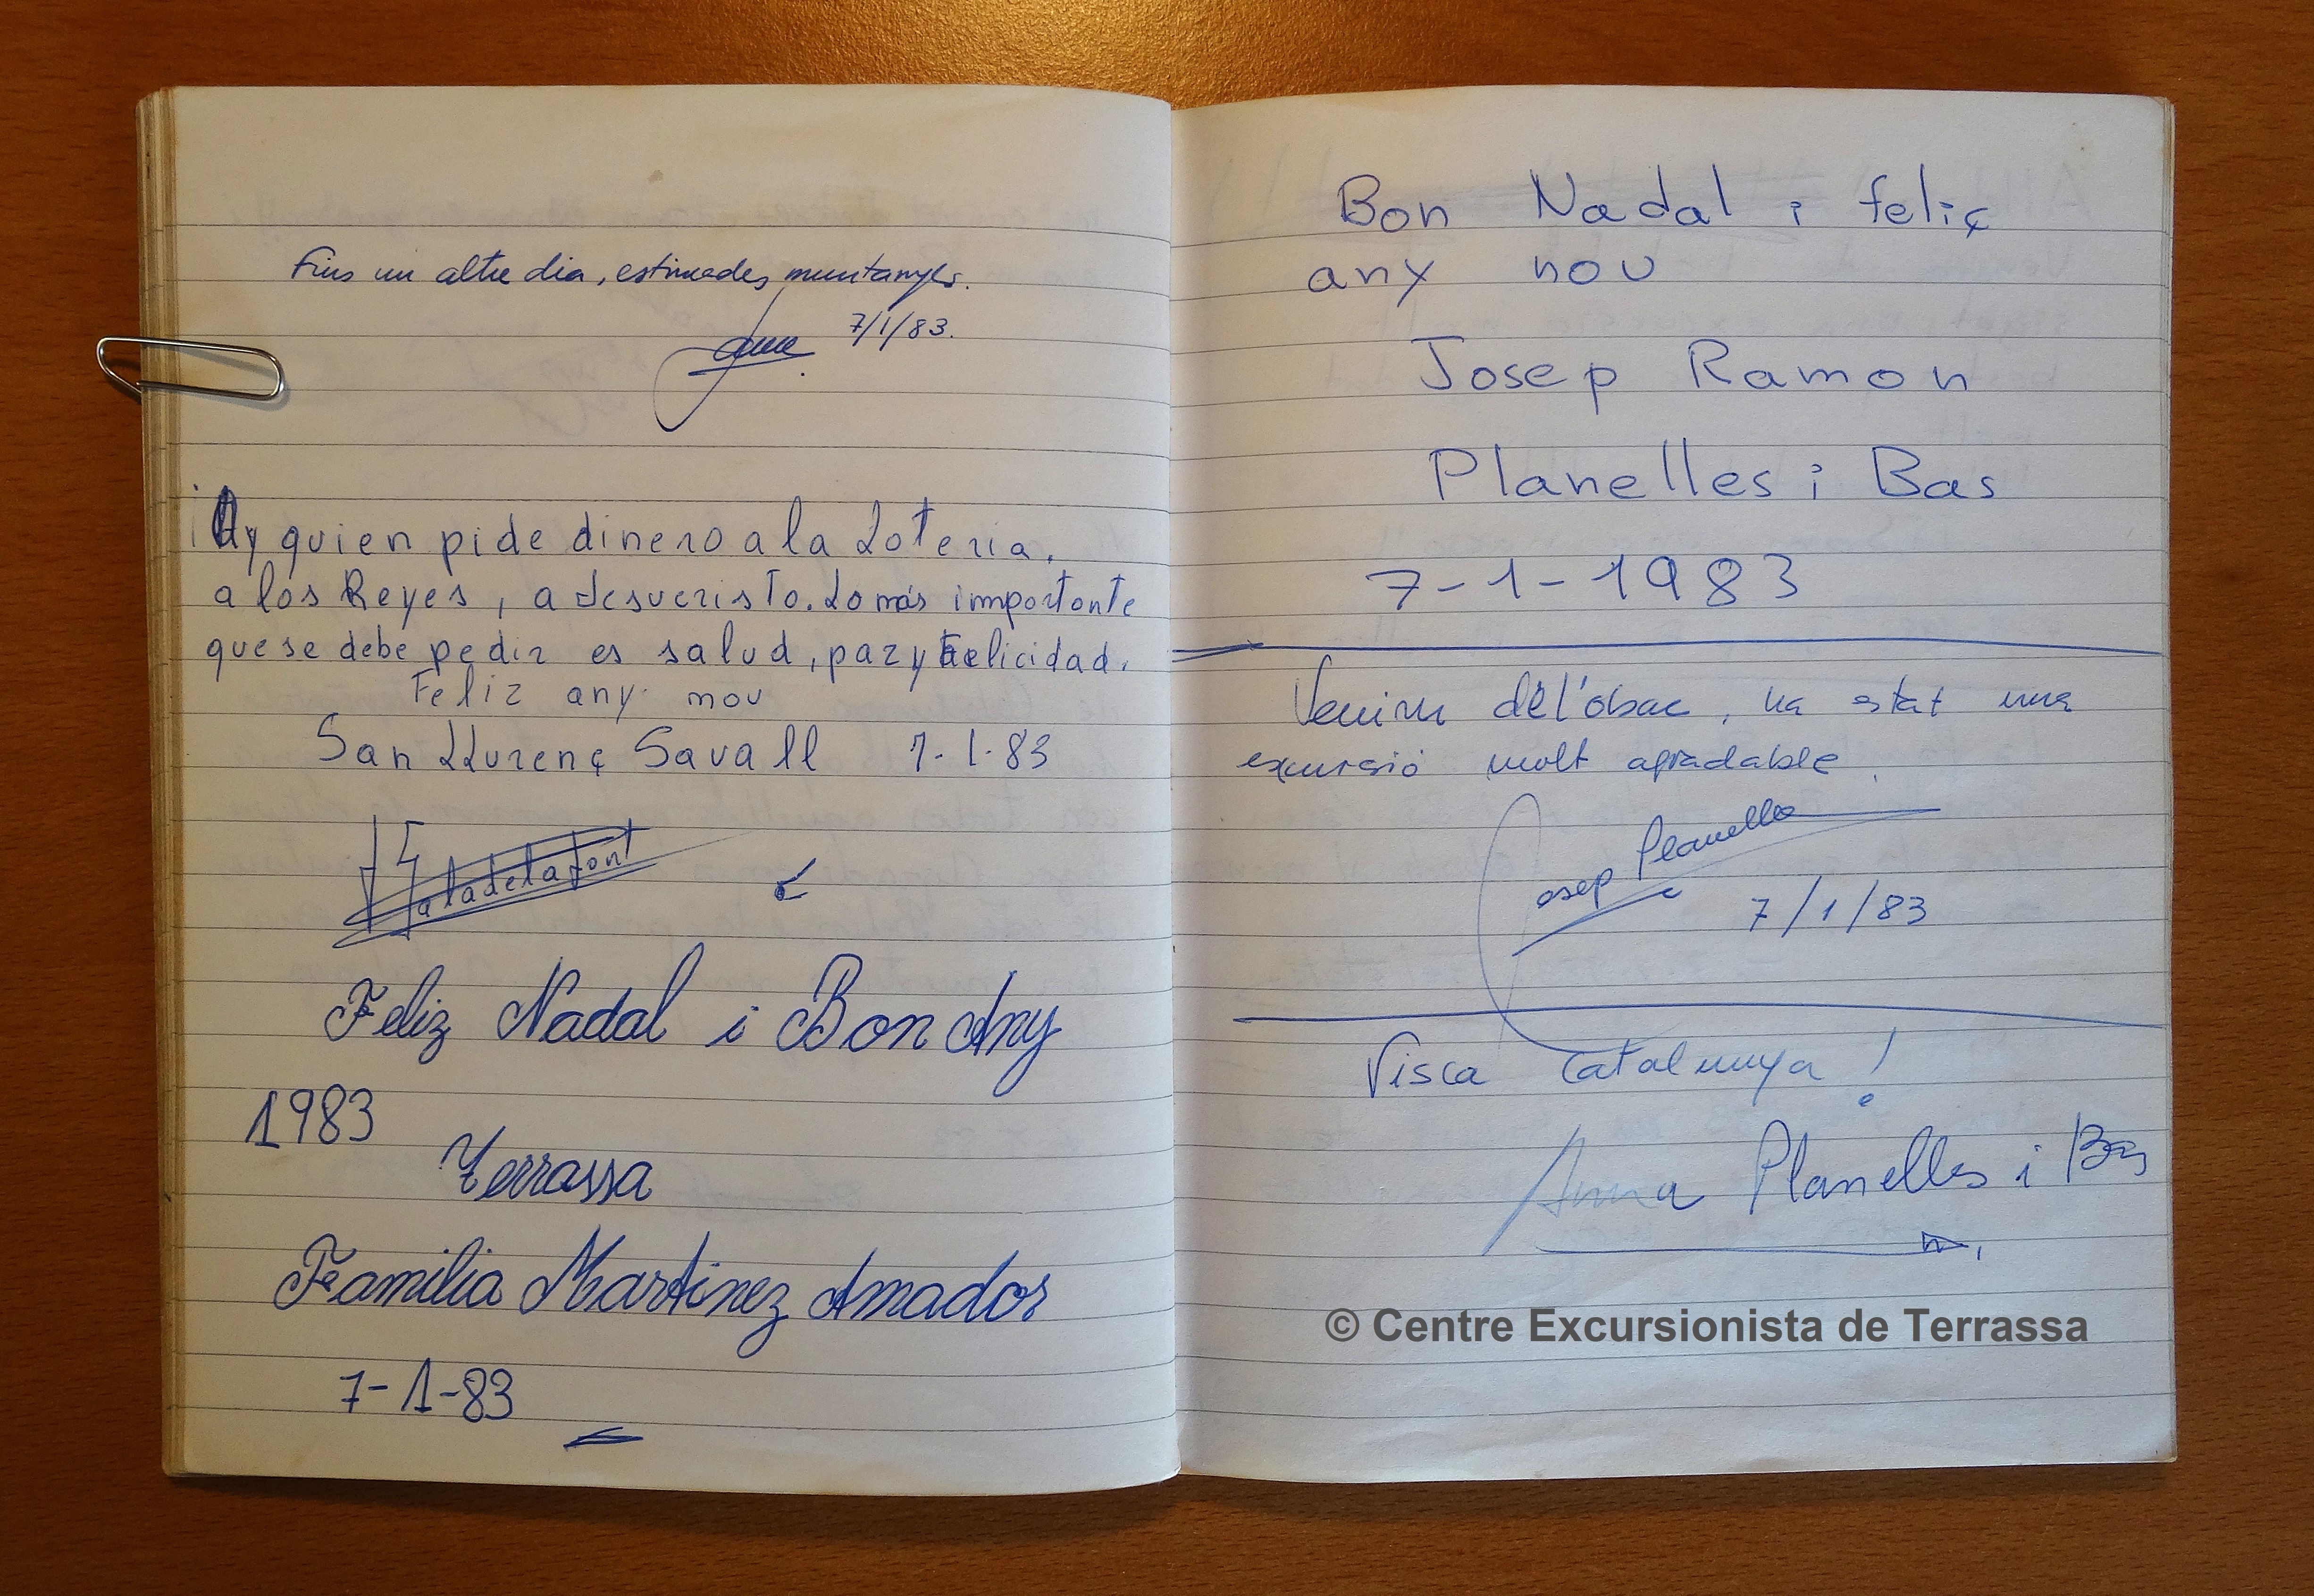 Fins un altre dia, estimades muntanyes.
7/1/83.
¡Ay quien pide dinero a la Loteria,
a los Reyes, a Jesucristo. Lo más immportante
que se debe pedir es salud, paz y felicidad.
Feliz any nou
San LLurenç Savall 7-1-83
Feliz Nadal i Bon Any
1983
Terrassa
Familia Martinez Amador
7-1-83
Bon Nadal i feliç
any nou
Josep Ramon
Planelles i Bas
7-1-1983
Venim de l'obac, ha estat una
excursió molt agradable.
Josep Planelles
7/1/83
Visca Catalunya!
Anna Planelles i Bas
© Centre Excursionista de Terrassa